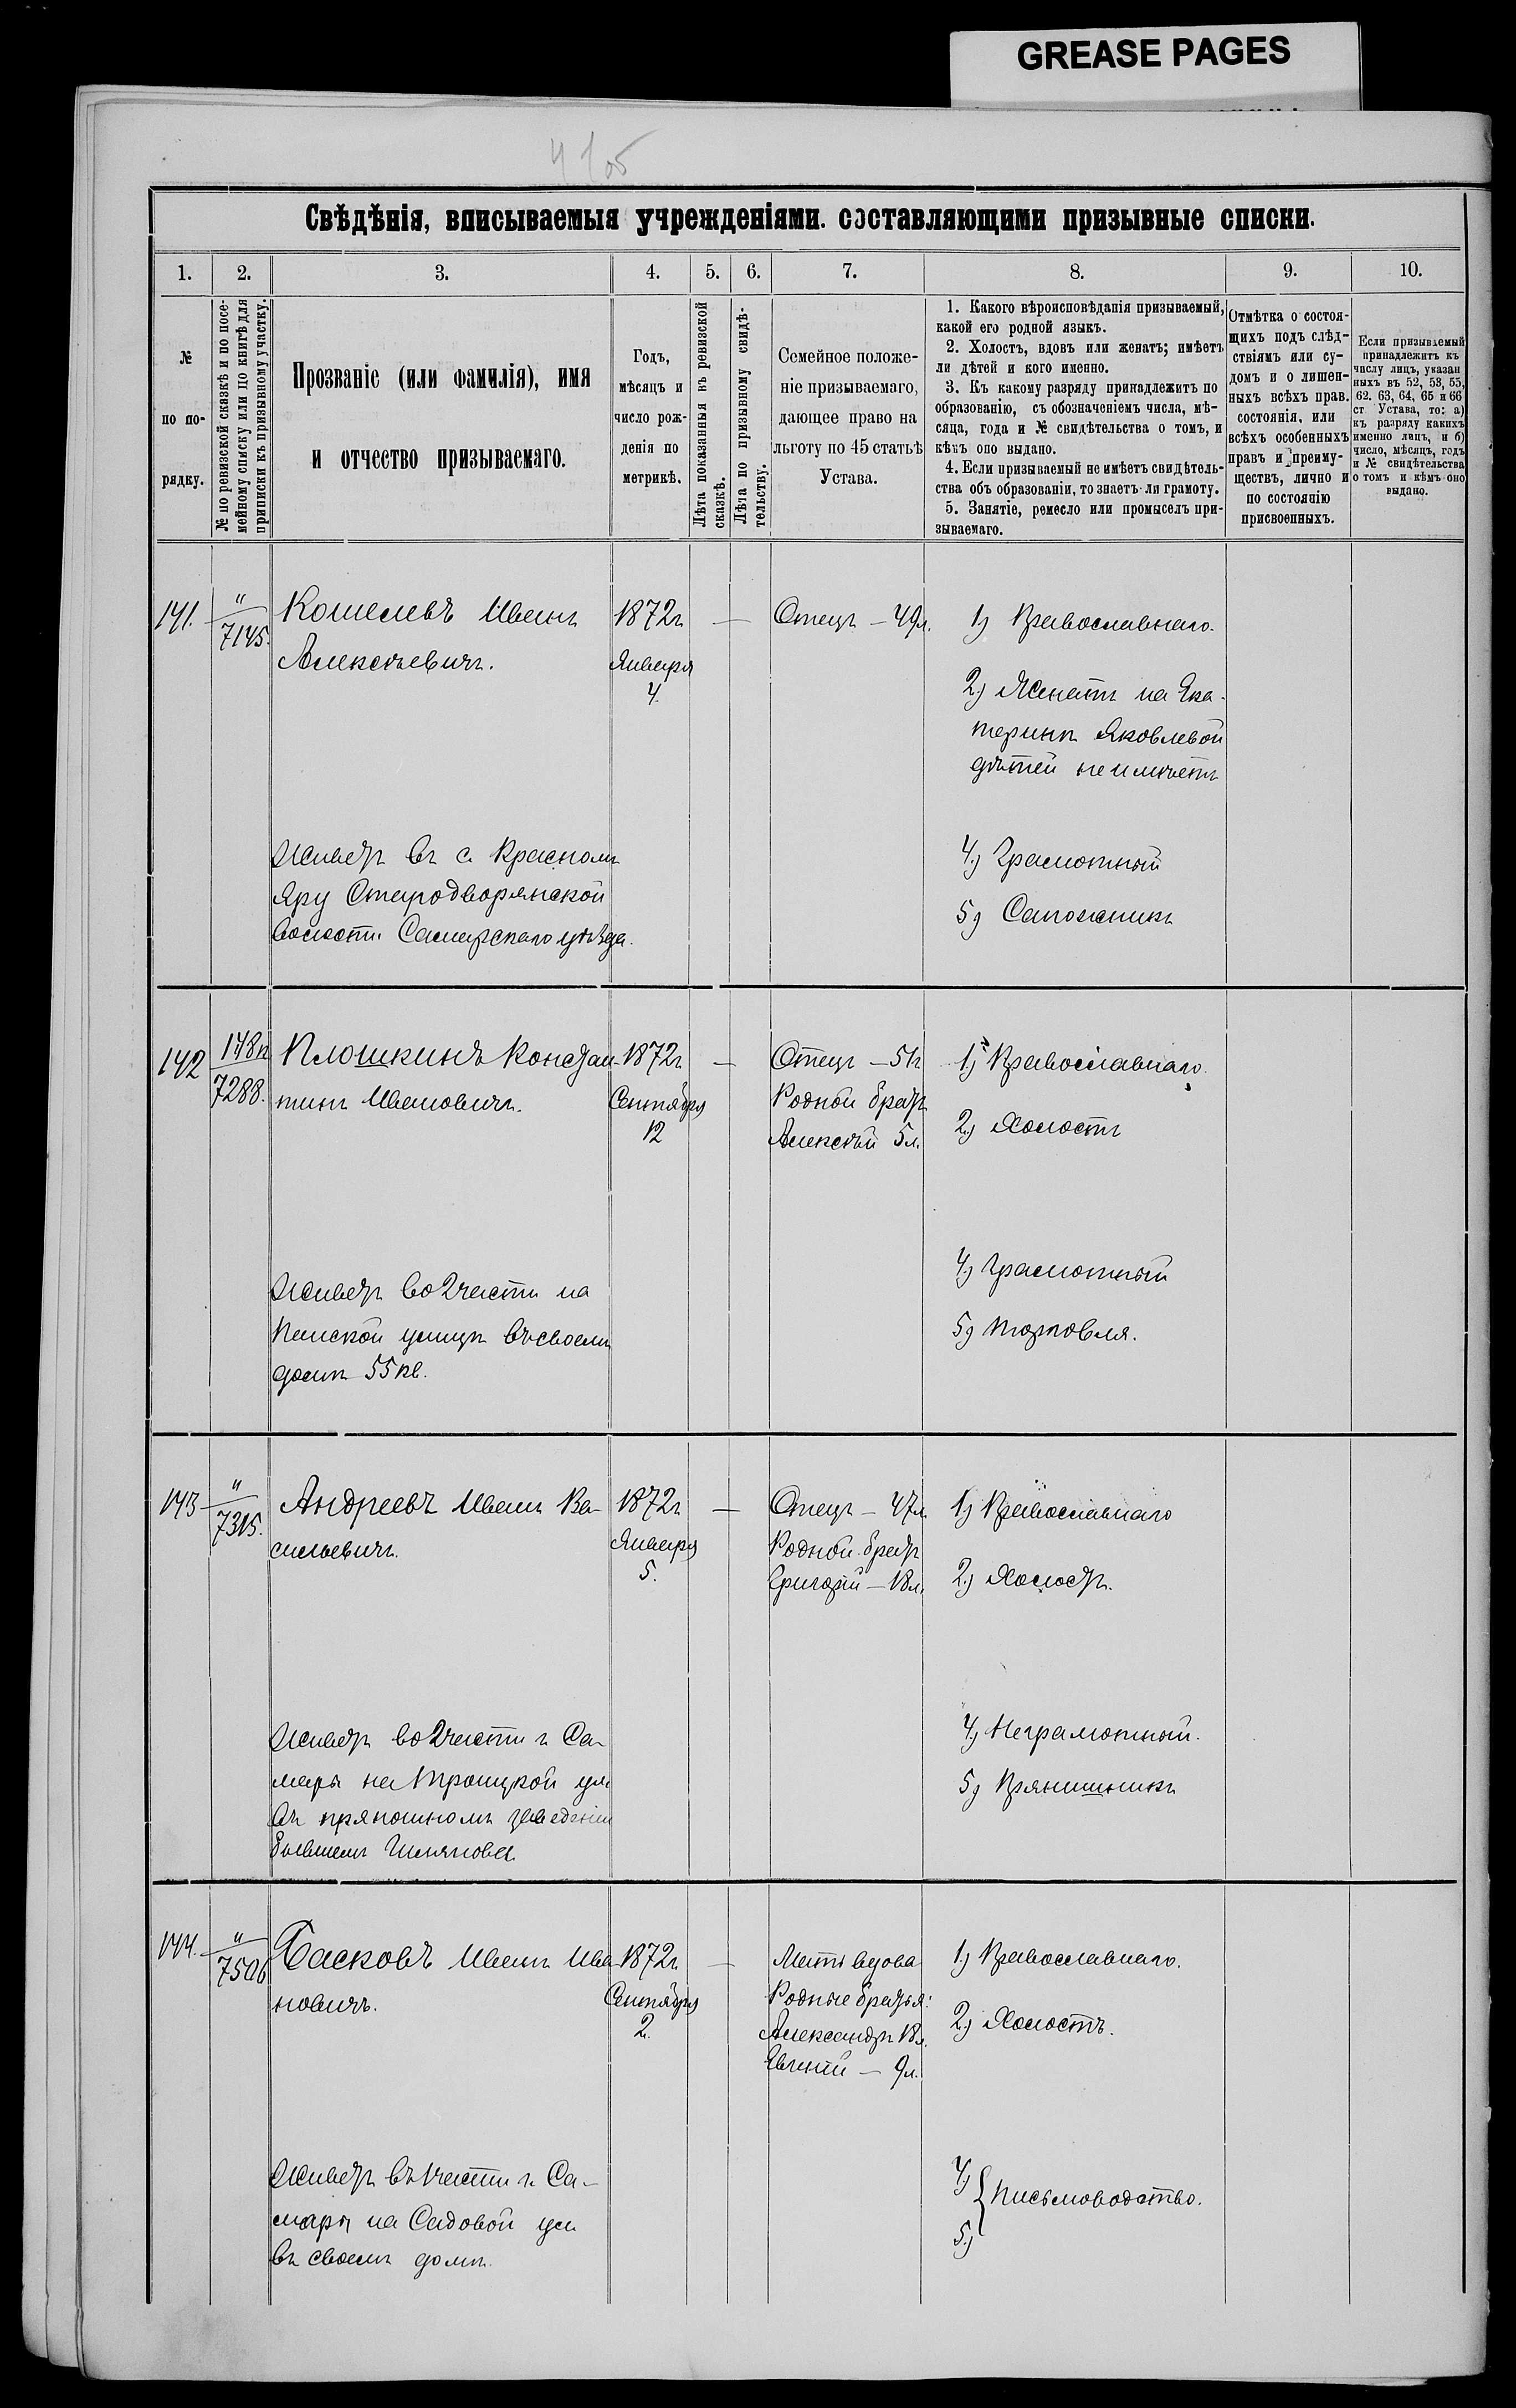 GREASE PAGES
Свѣдѣнія, вписываемыя учрежденіями. составляющими призывные списки.
1. 2. 3. 4. 5. 6. 7. 8. 9. 10.
№
по по-
рядку.
№ по ревизской сказкѣ и по посе-
мейному списку или по книгѣ для
приписки къ призывному участку.
Прозваніе (или фамилія), имя
и отчество призываемаго.
Годъ,
мѣсяцъ и
число рож-
денія по
метрикѣ.
Лѣта показанныя въ ревизской
сказкѣ.
Лѣта по призывному свидѣ-
тельству.
Семейное положе-
ніе призываемаго,
дающее право на
льготу по 45 статьѣ
Устава.
1. Какого вѣроисповѣданія призываемый,
какой его родной языкъ.
2. Холостъ, вдовъ или женатъ; имѣетъ
ли дѣтей и кого именно.
3. Къ какому разряду принадлежитъ по
образованію, съ обозначеніемъ числа, мѣ-
сяца, года и № свидѣтельства о томъ, и
кѣмъ оно выдано.
4. Если призываемый не имѣетъ свидѣтель-
ства объ образованіи, то знаетъ-ли грамоту.
5. Занятіе, ремесло или промыселъ при-
зываемаго.
Отмѣтка о состоя-
щихъ подъ слѣд-
ствіямъ или су-
домъ и о лишен-
ныхъ всѣхъ прав.
состоянія, или
всѣхъ особенныхъ
правъ и преиму-
ществъ, лично и
по состоянію
присвоенныхъ.
Если призываемый
принадлежитъ къ
числу лицъ, указан
ныхъ въ 52, 53, 55,
62. 63, 64, 65 и 66
ст Устава, то: а)
къ разряду какихъ
именно лицъ, и б)
число, мѣсяцъ, годъ
и № свидѣтельства
о томъ и кѣмъ оно
выдано.
141.
"
7145.
Кошелевъ Иванъ
Алексѣевичъ.
1872г.
Января
4.
—
Отецъ — 49л.
1) Православнаго.
2.) Женатъ на Ека-
теринѣ Яковлевой
дѣтей не имѣетъ
Живетъ въ с. Красномъ
Яру Стародворянской
волости Самарскаго уѣзда.
4.) Грамотный
5) Сапожникъ
142
148п
7288.
Плошкинъ Констан-
тинъ Ивановичъ.
1872г.
Сентября
12
—
Отецъ — 51г
Родной братъ
Алексѣй 5л.
1.) Православнаго.
2.) Холостъ
Живетъ во 2 части на
улицѣ въ своемъ
домѣ 55 кв.
4.) Грамотный
5) Торговля.
143
"
7315.
Андреевъ Иванъ Ва-
сильевичъ.
1872г.
Января
5.
—
Отецъ — 47л.
Родной братъ
Григорій — 18л.
1) Православнаго
2.) Холостъ.
Живетъ во 2 части г. Са-
мары на Троицкой ул.
въ пряношномъ заведеніи
бывшемъ
4.) Неграмотный.
5) Прянишникъ
144.
"
7506
Басковъ Иванъ Ива
новичъ.
1872г.
Сентября
2.
—
Мать вдова
Родные братья:
Александръ 18л.
Евгеній — 9л.
1.) Православнаго.
2.) Холостъ.
Живетъ въ 1 части г. Са-
мары на Садовой ул.
въ своемъ домѣ.
4.)
5.)
Письмоводство.